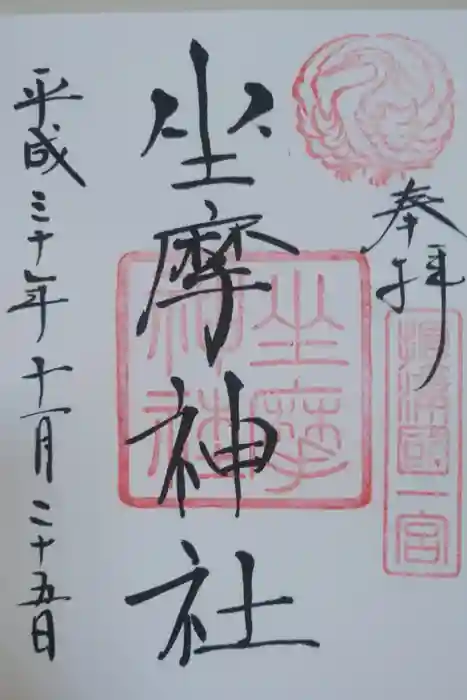 奉拝
摂津國一宮
坐摩神社
坐摩神社
平成三十年十一月二十五日